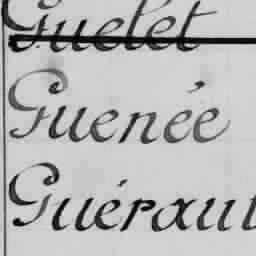 Guelet
Guenée
Guéraut